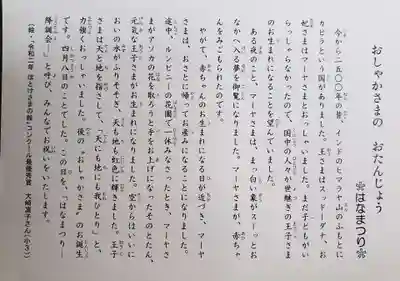 おしゃかさまの おたんじょう
❀はなまつり❀
今から二五〇〇年の昔、インドのヒマラヤ山のふもとに
カピラという国がありました。王さまはスッドーダナ、お
妃さまはマーヤさまとおっしゃいました。まだ子どもがい
らっしゃらなかったので、国中の人々が世継ぎの王子さま
のお生まれになることを望んでいました。
ある夜のこと、マーヤさまは、まっ白い象がスーッとお
なかへ入る夢を御覧になりました。マーヤさまが、赤ちゃ
んをみごもられたのです。
やがて、赤ちゃんのお生まれになる日が近づき、マーヤ
さまは、おさとに帰ってお産みになることになりました。
途中、ルンビニーの花園で一休みなさったとき、マーヤさ
まがアソカの花を取ろうと手をお上げになったそのとたん、
元気な王子さまがお生まれになりました。空からはいいに
おいの水がふりそそぎ、天も地も虹色に輝きました。王子
さまは天と地を指さして、「天にも地にも我ひとり」と、
力強くおっしゃいました。後の〝おしゃかさま〟のお誕生
です。四月八日のことでした。この日を、「はなまつり―
降誕会―」と呼び、みんなでお祝いをいたします。
〔絵・令和二年 ほとけさまの絵・コンクール最優秀賞